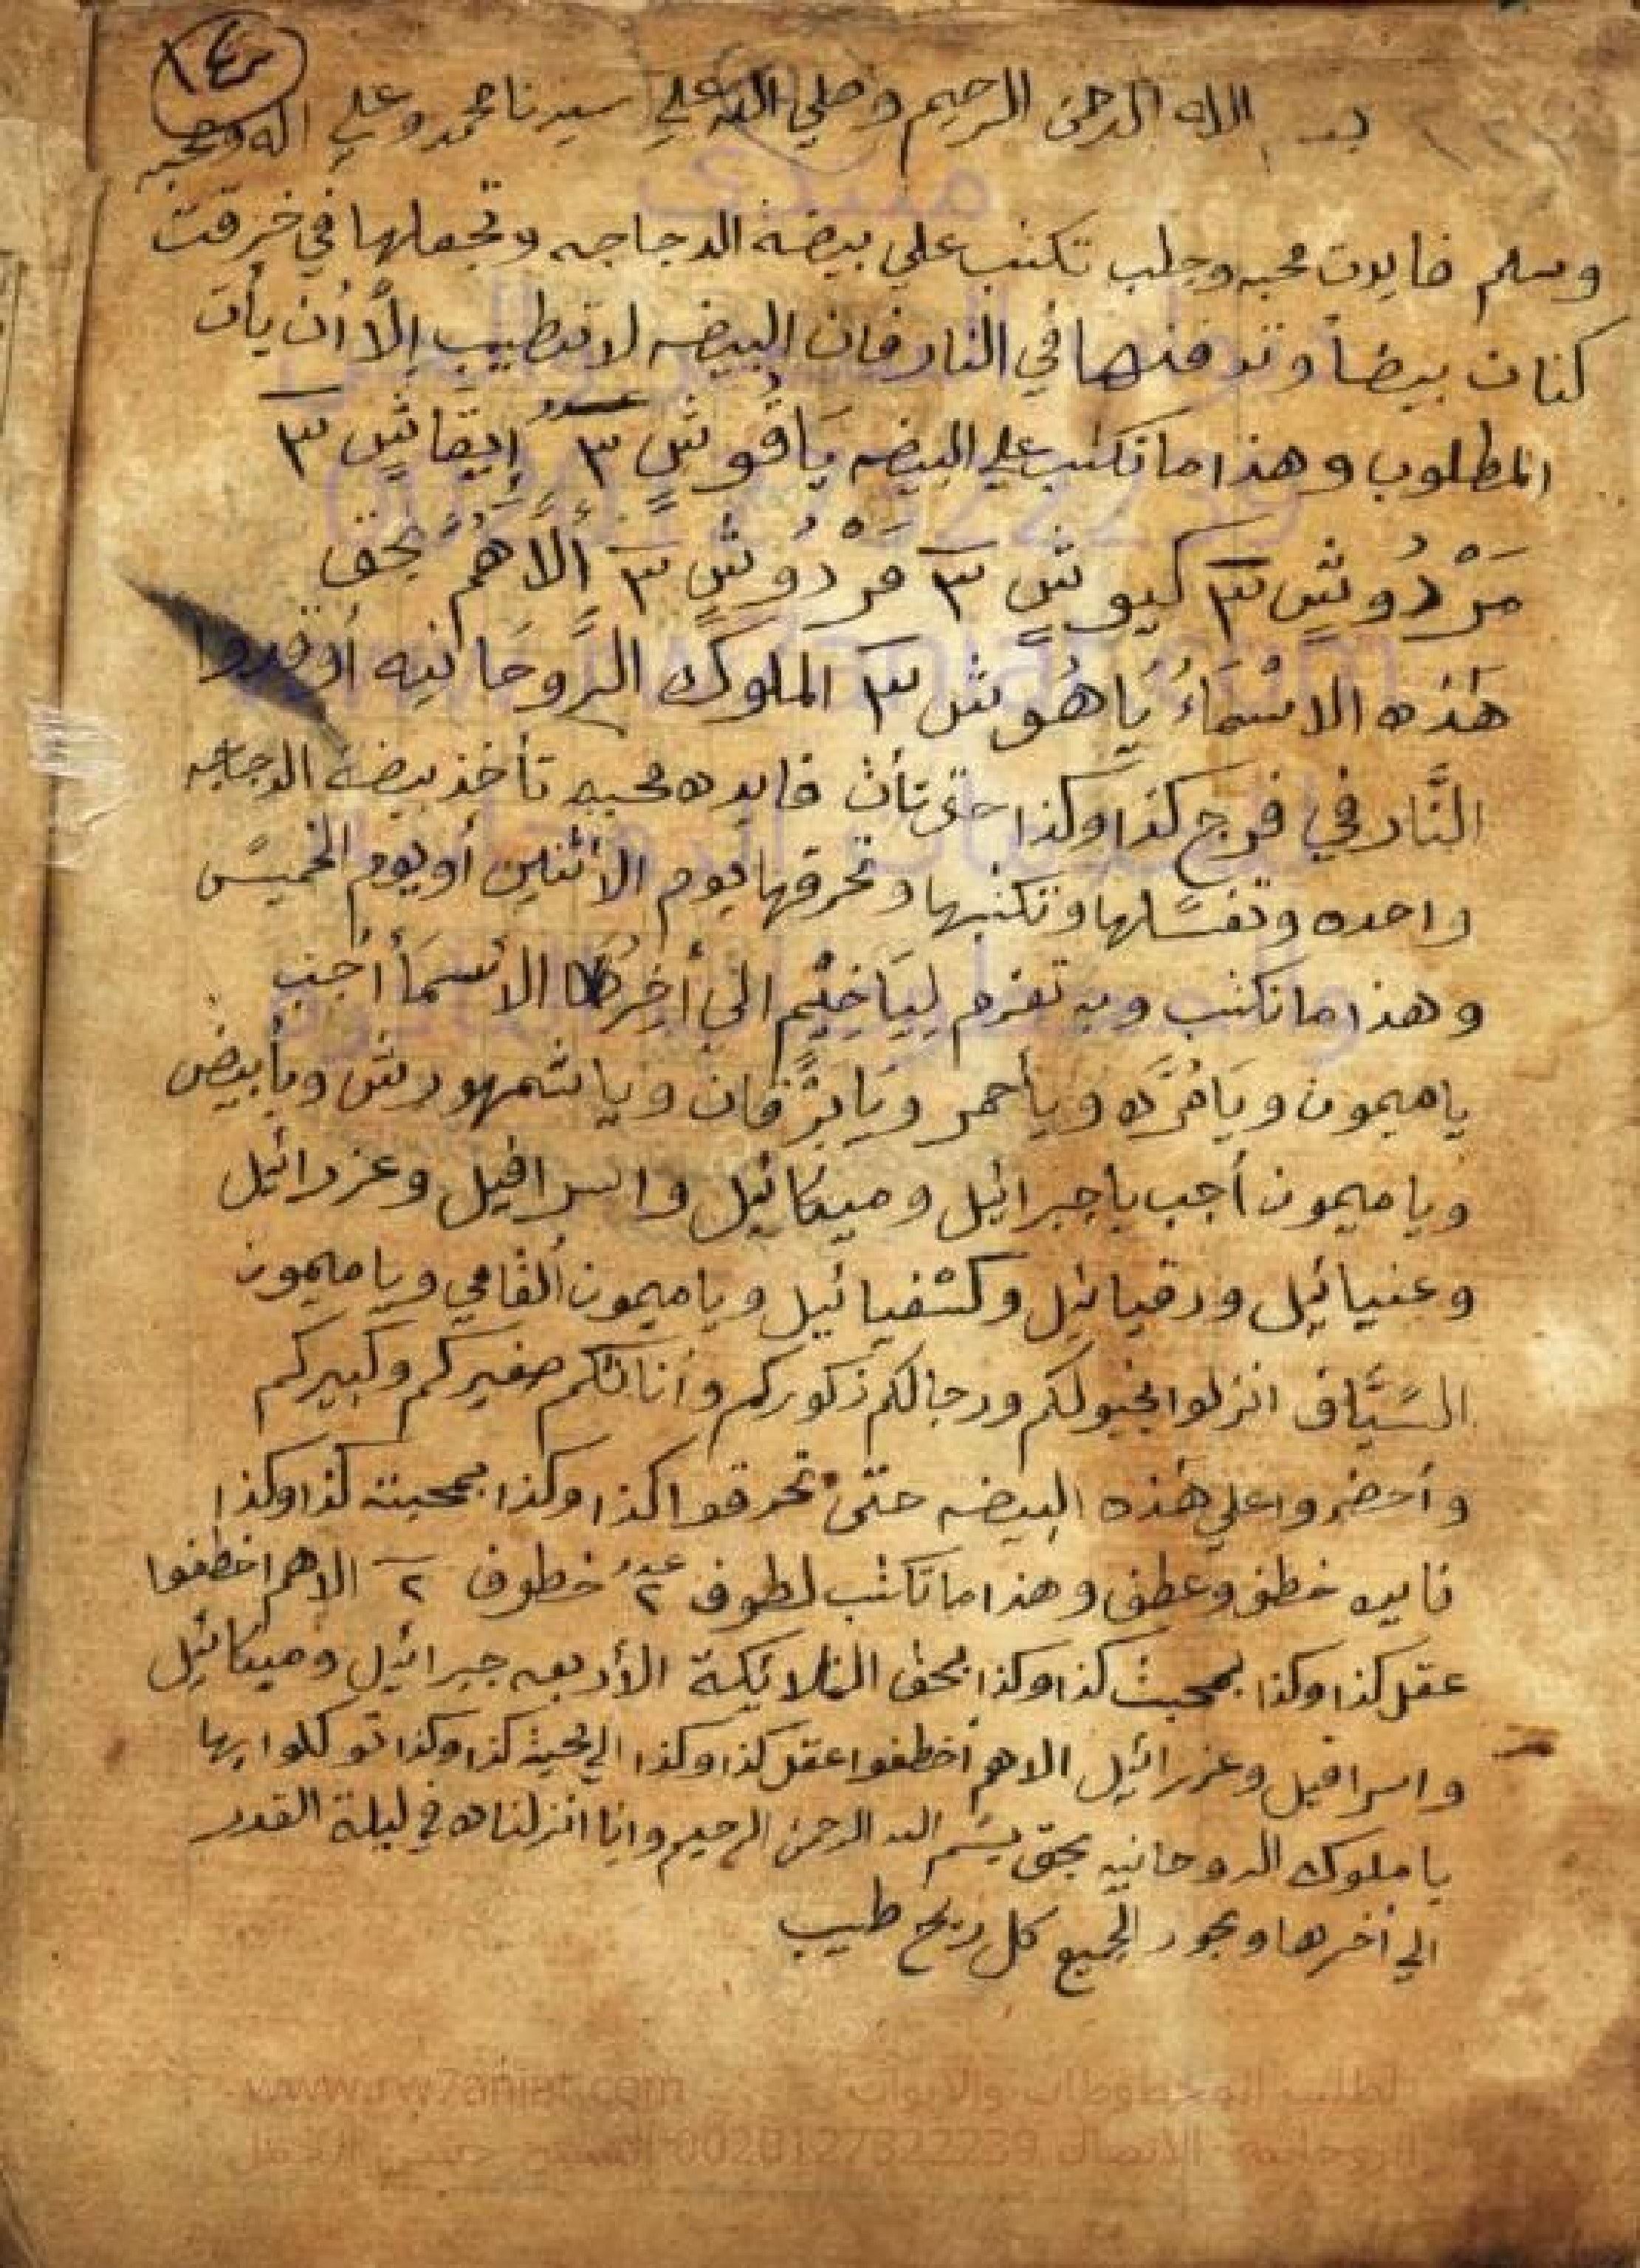 ١٤
بسم الله الرحمن الرحيم وصلي الله علي سيدنا محمد وعلي اله وصحبه
وسلم فايدت محبه وجلب تكتب علي بيضة الدجاجه وتجعلها في خرقت
كتان بيضا وتدفنها في النار فان البيضه لا تطيب إلا أن يأت
المطلوب وهذا ما تكتب علي البيضه يَاقُوشٍ ٣ إيقاشٍ ٣
مَرْدُوشٍ ٣ كيوشٍ ٣ مَرْدُوشٍ ٣ ألاهم بحق
هَذه الاسْمَاءُ يَاهُوش ٣ الملوك الروحانيه أوقدوا
النَّار في فرج كذا وكذا حتى تأت فايده محبيه تأخذ بيضة الدجاجه
واحده وتغسلها وتكتبها وتحرقها يوم الأثنين أو يوم الخميس
وهذا ما تكتب وبه تعزم لِيَاخِيْم الي أخِرهَا الأسمَأ أجب
يا ميمون ويَا مُرَّه ويأحمر ويَا بَرْقان ويا شمهورش ويأبيض
ويا ميمون أجب يا جبرائيل وميكائيل واسرافيل وعزرائيل
وعنيائيل ورقيائيل وكسفيائيل ويا ميمون ويا ميمون
السَّيَّاف انزلوا بخيولكم ورجالكم ذكوركم وأناثكم صغيركم وكبيركم
وأحضروا علي هذه البيضه حتىٰ تحرقوا كذا وكذا بمحبته كذا وكذا
فايده خطف وعطف وهذا ما تكتب لطوف ٢ خطوف ٢ الاهم اخطفوا
عقل كذا وكذا بمحبت كذا وكذا بحق الملائكة الأربعه جبرائيل وميكائيل
واسرافيل وعزرائيل الاهم أخطفوا عقل كذا وكذا الي محبة كذا وكذا توكلوا بها
يا ملوك الروحانيه بحق بسم الله الرحمن الرحيم وانا انزلناه في ليلة القدر
الي أخرها وبخور الجميع كل ريح طيب
لطلب المخطوطات والابواب www.rw7aniat.com
الروحانية الاتصال 0020127822239 الشيخ